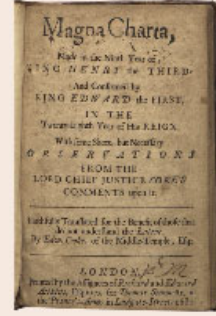 Magna Charta,
Made in the Ninth Year of
KING HENRY the THIRD,
And Confirmed by
KING EDWARD the FIRST,
IN THE
Twenty-eighth Year of His REIGN.
With some Short, but Necessary
OBSERVATIONS
FROM THE
LORD CHIEF JUSTICE COKE'S
COMMENTS upon it.
Faithfully Translated for the Benefit of those that
do not understand the
By Edw. Cooke, of the Middle-Temple, Esq;
LONDON,
Printed by the Assignees of Richard and Edward
Atkins, Esquires, for Thomas Simmons, at
the Princes Arms in Ludgate-street.